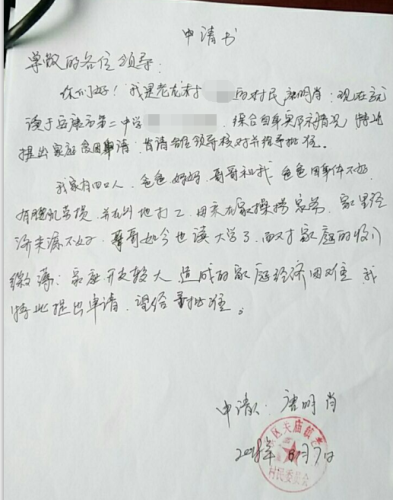 申请书
尊敬的各位领导：
你们好！我是老龙村 的村民唐明肖，现在就
读于 第二中学 ，综合自身实际情况，特此
提出家庭贫困申请，肯请各位领导核对并指导批准。
我家有四口人，爸爸、妈妈、哥哥和我，爸爸因身体不好，
并在 地打工，母亲在家操持家务，家里经
济来源不好，哥哥如今也读大学了，面对家庭的收入
微薄，家庭开支较大，造成的家庭经济困难，我
特此提出申请，望给予批准。
申请人：唐明肖
月7日
区天庙镇老
村民委员会